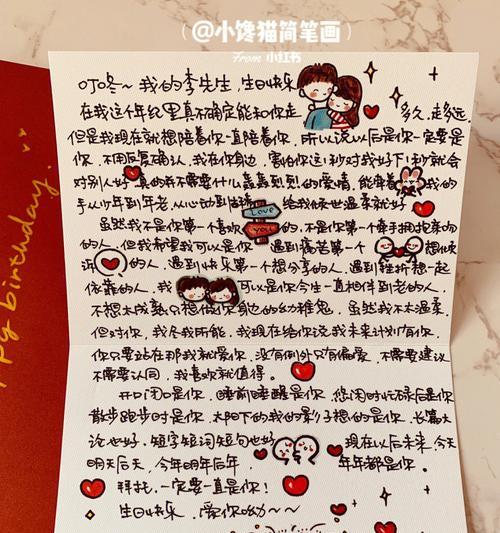 (@小馋猫简笔画)
From 小红书
叮咚~我的李先生，生日快乐
在我这个年纪里真不确定能和你走多久，走多远，
但是我现在就想陪着你一直陪着你，所以说以后是你一定要是
你，不用反复确认，我在你身边，害怕你这1秒对我好下1秒就会
对别人好，真的我不需要什么轰轰烈烈的爱情，能牵着我的
手从少年到年老，从心动到古稀给我余世温柔就好
虽然我不是你第一个喜欢的，不是你第一个牵手拥抱亲吻
的人，但我希望我可以是你遇到痛苦第一个想倾
诉的人，遇到快乐第一个想分享的人，遇到挫折想一起
依靠的人，我可以是你今生一直相伴到老的人，
不想太成熟只想做你身边的幼稚鬼，虽然我不太温柔
但对你，我尽我所能，我现在给你说我未来计划有你，
你只要站在那我就爱你，没有例外只有偏爱，不需要建议
不需要认同，我喜欢就值得。
开口闭口是你，睡前睡醒是你，悠闲时忙碌后是你
散步跑步时是你，太阳下的我的影子想的是你，长篇大
论也好，短字短词短句也好现在以后未来，今天
明天后天，今年明年后年，年年都是你。
拜托，一定要一直是你！
生日快乐，爱你呦~~
LOVE
YOU
ppy birthday.